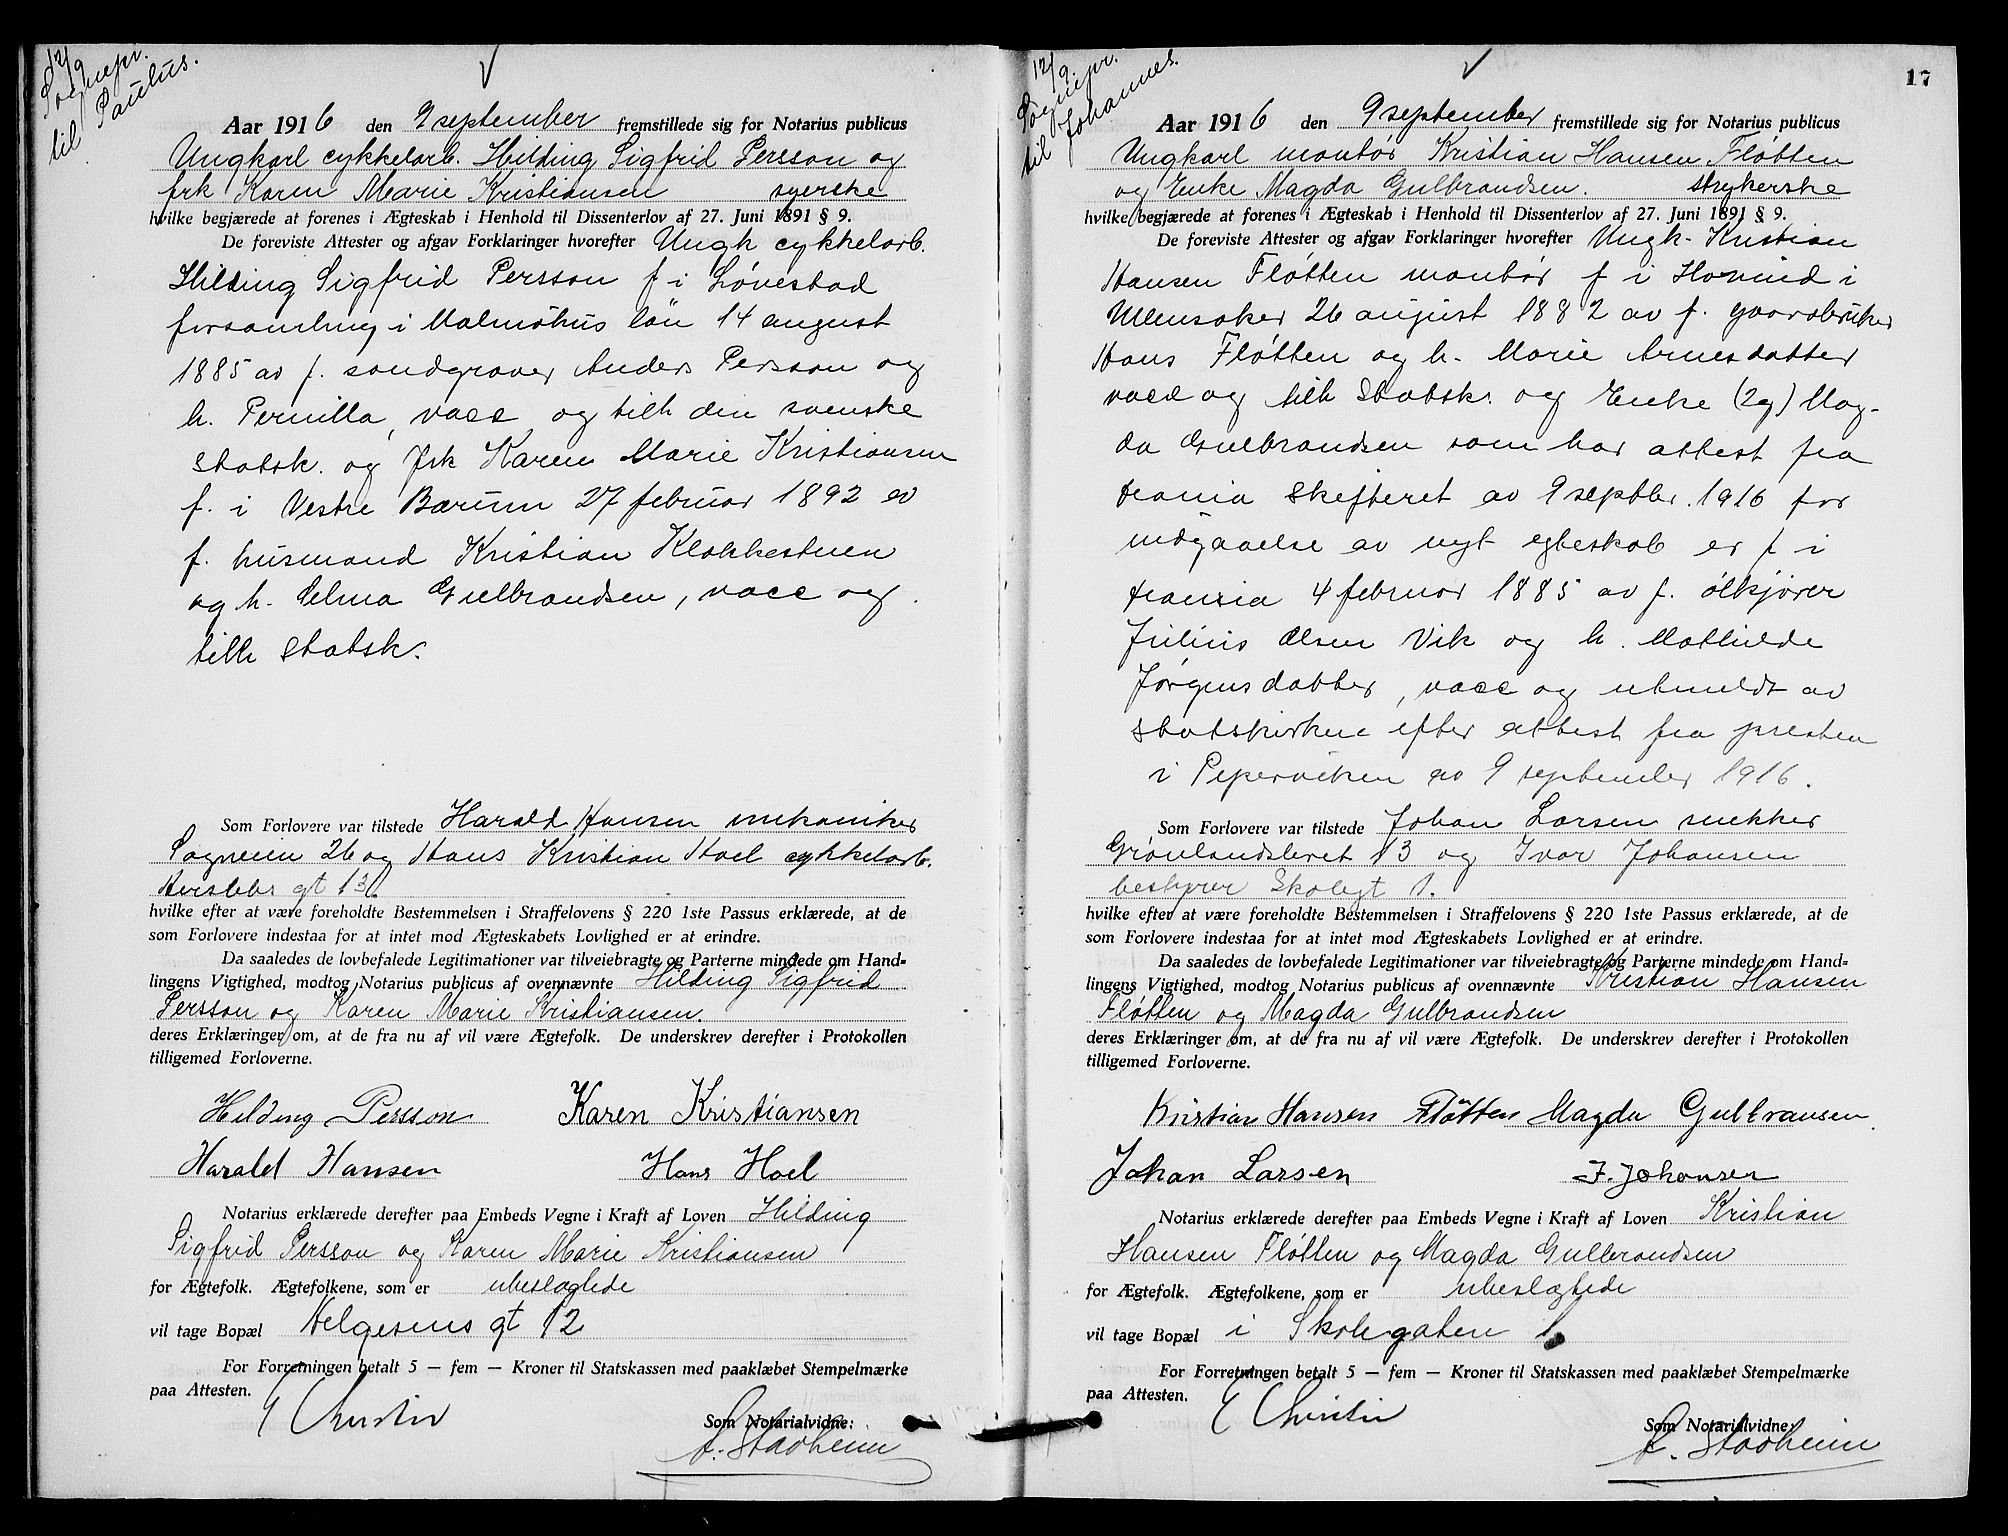 12/9
Sognepr.
til Paulus.
Aar 1916 den 9 september fremstillede sig for Notarius publicus
Ungkarl cykkelarb. Hilding Sigfrid Persson og
frk Karen Marie Kristiansen syerske
hvilke begjærede at forenes i Ægteskab i Henhold til Dissenterlov af 27. Juni 1891 § 9.
De foreviste Attester og afgav Forklaringer hvorefter Ungk cykkelarb.
Hilding Sigfrid Persson f i Løvestad
forsamling i Malmöhus län 14 august
1885 av f. sandgraver Anders Persson og
h. Pernilla, vacc og tilh den svenske
statsk. og frk Karen Marie Kristiansen
f. i Vestre Bærum 27 februar 1892 av
f. husmand Kristian Klokkestuen
og h. Selma Gulbrandsen, vacc og
tilh statsk.
Som Forlovere var tilstede Harald Hansen mekaniker
Sogneveien 26 og Hans Kristian Hoel cykkelarb.
Herslebs gt 13
hvilke efter at være foreholdte Bestemmelsen i Straffelovens § 220 1ste Passus erklærede, at de
som Forlovere indestaa for at intet mod Ægteskabets Lovlighed er at erindre.
Da saaledes de lovbefalede Legitimationer var tilveiebragte og Parterne mindede om Hand-
lingens Vigtighed, modtog Notarius publicus af ovennævnte Hilding Sigfrid
Persson og Karen Marie Kristiansen.
deres Erklæringer om, at de fra nu af vil være Ægtefolk. De underskrev derefter i Protokollen
tilligemed Forloverne.
Hilding Persson Karen Kristiansen
Harald Hansen Hans Hoel
Notarius erklærede derefter paa Embeds Vegne i Kraft af Loven Hilding
Sigfrid Persson og Karen Marie Kristiansen
for Ægtefolk. Ægtefolkene, som er ubeslægtede
vil tage Bopæl Helgesens gt 12
For Forretningen betalt 5 — fem — Kroner til Statskassen med paaklæbet Stempelmærke
paa Attesten.
Som Notarialvidne:
17
12/9.
Sognepr.
til Johannes.
Aar 1916 den 9 september fremstillede sig for Notarius publicus
Ungkarl montør Kristian Hansen Fløtten
og Enke Magda Gulbrandsen. strykerske
hvilke begjærede at forenes i Ægteskab i Henhold til Dissenterlov af 27. Juni 1891 § 9.
De foreviste Attester og afgav Forklaringer hvorefter Ungk. Kristian
Hansen Fløtten montør f i Hovind i
Ullensaker 26 august 1882 av f. gaardbruker
Hans Fløtten og h. Marie Arnesdatter
vacc og tilh Statsk. og Enke (2g) Mag-
da Gulbrandsen som har attest fra
Kr.ania Skifteret av 9 septbr. 1916 for
indgaaelse av nyt egteskab er f i
Kr.ania 4 februar 1885 av f. ølkjører
Julius Olsen Vik og h. Mathilde
Jørgensdatter, vacc og utmeldt av
statskirken efter attest fra presten
i Peperviken av 9 september 1916.
Som Forlovere var tilstede Johan Larsen snekker
Grønlandsleret 13 og Ivar Johansen
bestyrer Skolegt 1.
hvilke efter at være foreholdte Bestemmelsen i Straffelovens § 220 1ste Passus erklærede, at de
som Forlovere indestaa for at intet mod Ægteskabets Lovlighed er at erindre.
Da saaledes de lovbefalede Legitimationer var tilveiebragte og Parterne mindede om Hand-
lingens Vigtighed, modtog Notarius publicus af ovennævnte Kristian Hansen
Fløtten og Magda Gulbrandsen
deres Erklæringer om, at de fra nu af vil være Ægtefolk. De underskrev derefter i Protokollen
tilligemed Forloverne.
Kristian Hansen Fløtten Magda Gulbransen.
Johan Larsen I. Johansen
Notarius erklærede derefter paa Embeds Vegne i Kraft af Loven Kristian
Hansen Fløtten og Magda Gulbrandsen
for Ægtefolk. Ægtefolkene, som er ubeslægtede
vil tage Bopæl i Skolegaten 1.
For Forretningen betalt 5 — fem — Kroner til Statskassen med paaklæbet Stempelmærke
paa Attesten.
Som Notarialvidne: